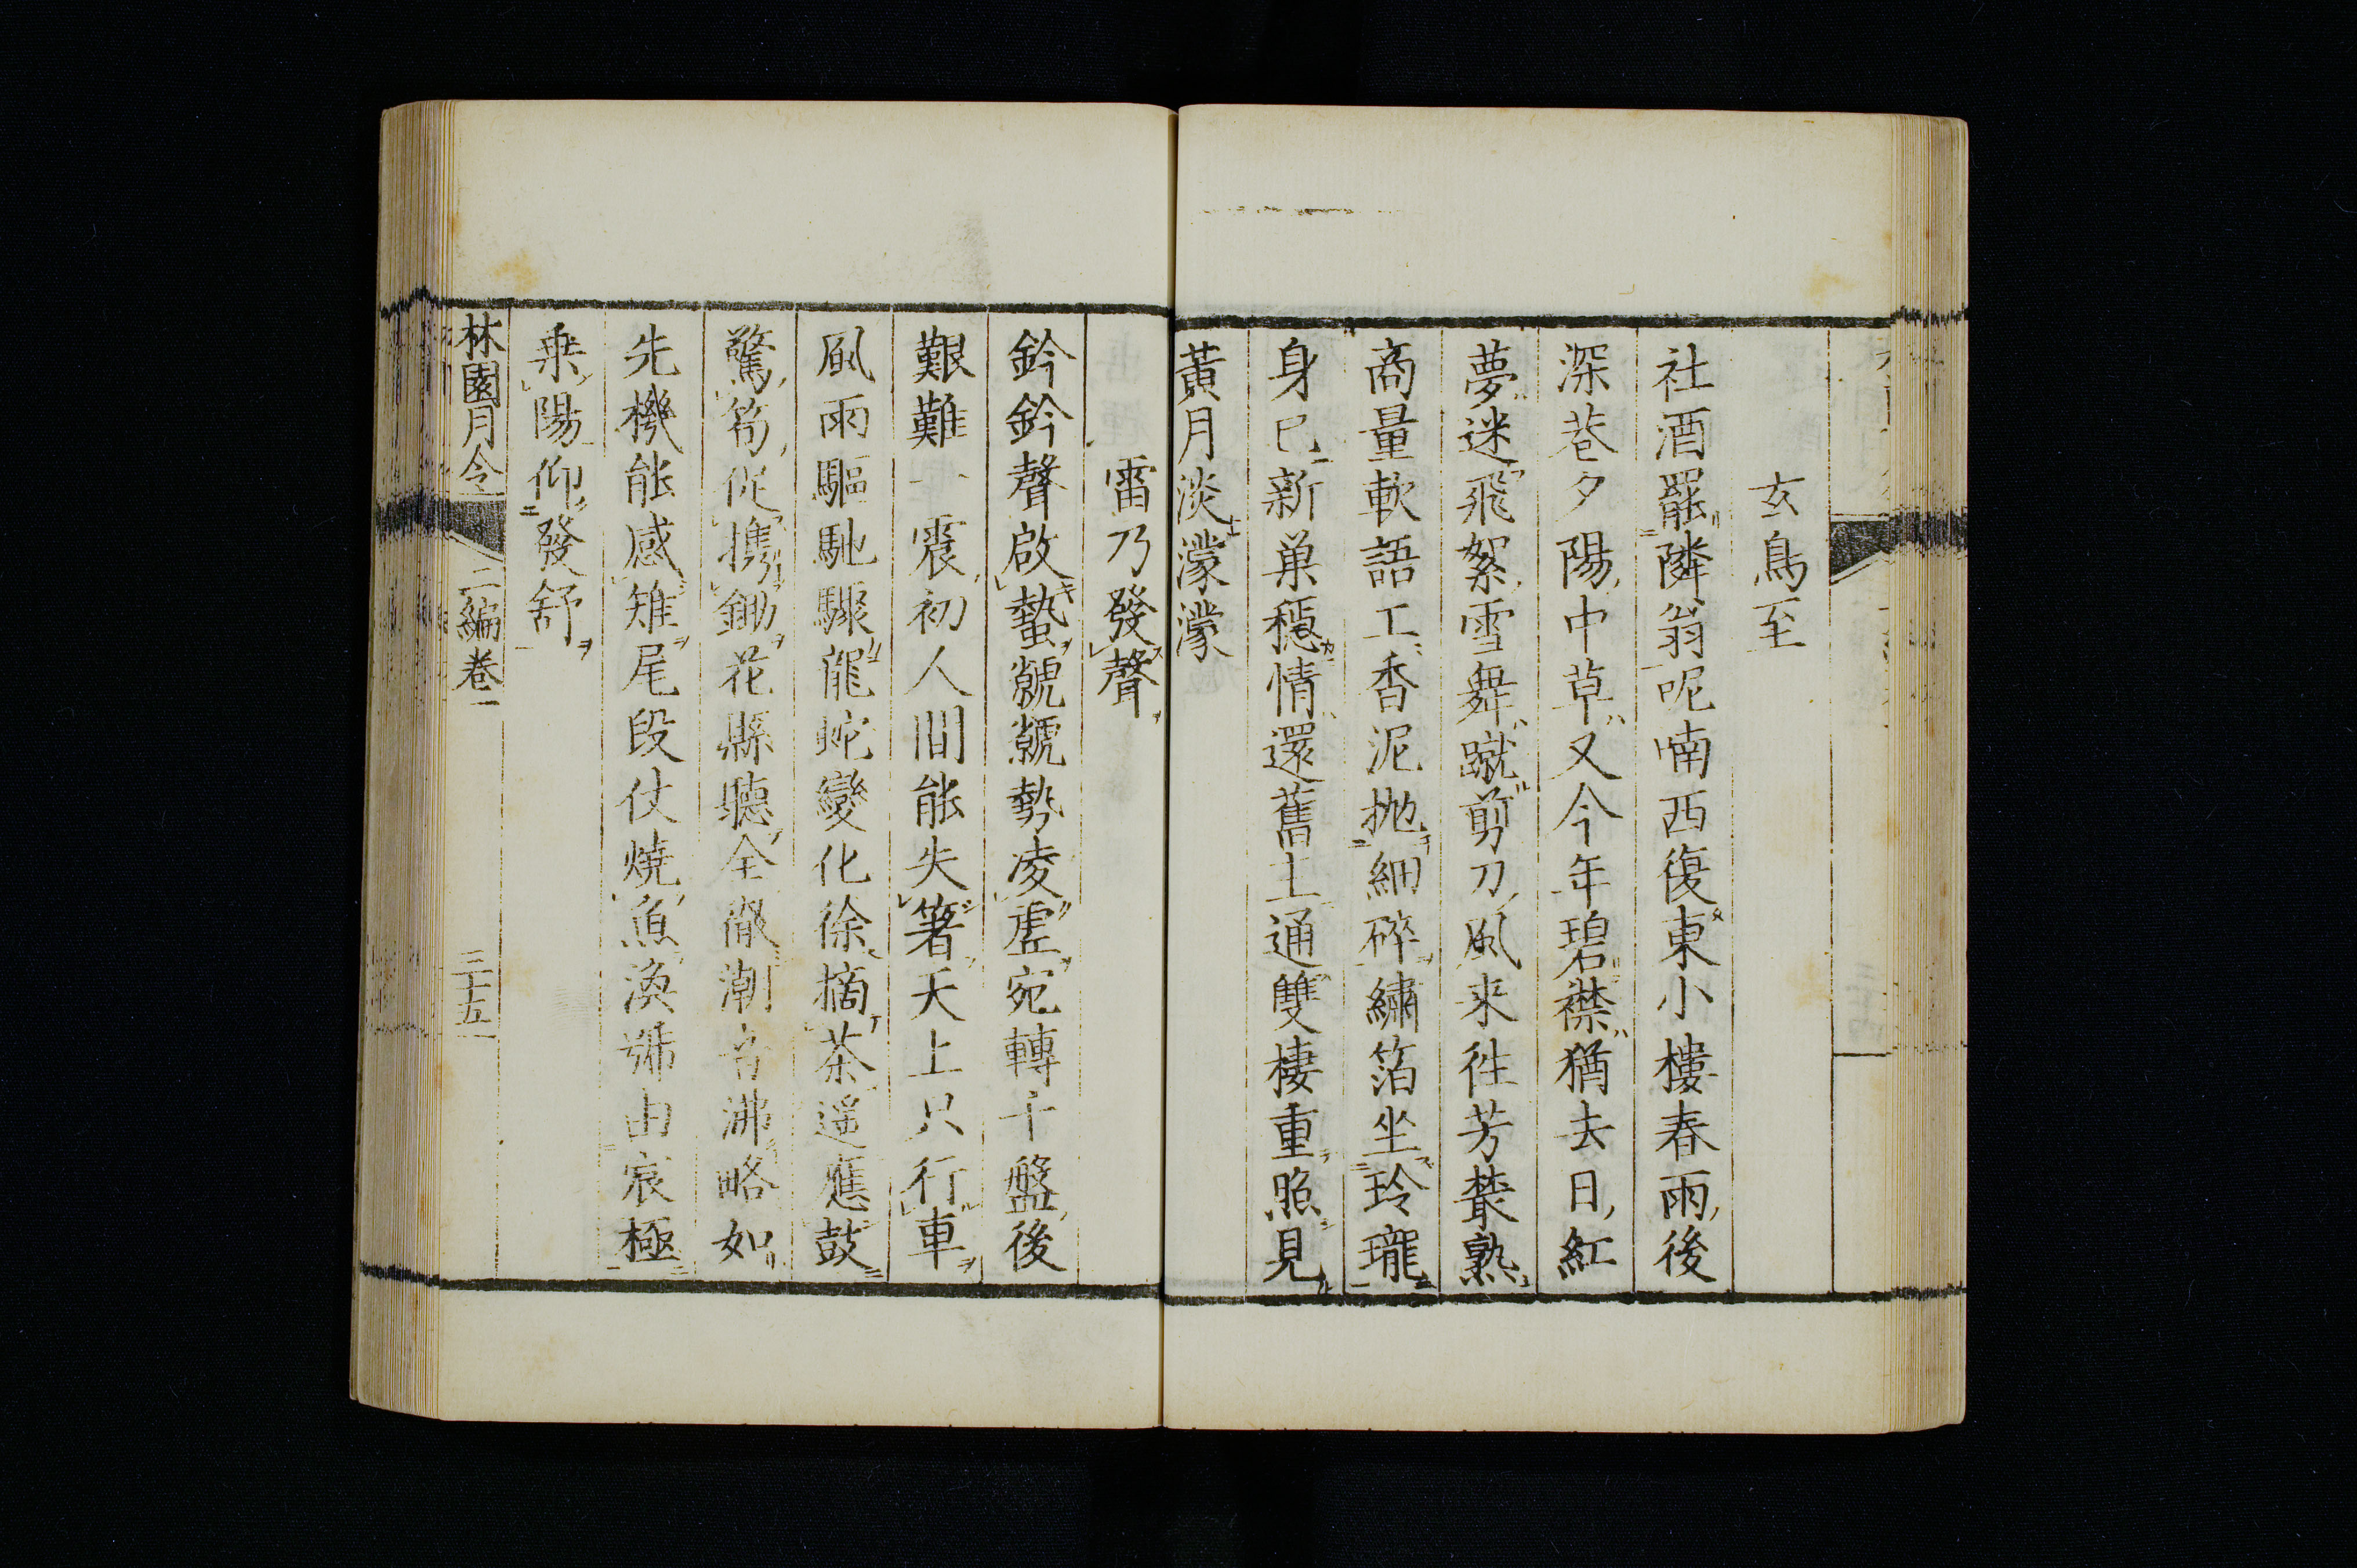 玄鳥至
社酒罷隣翁呢喃西復東小樓春雨後
深巷夕陽中草又今年碧襟猶去日紅
夢迷飛絮雪舞蹴剪刀風来往芳叢熟
商量軟語工香泥抛細碎繡箔坐玲瓏
身已新巢穏情還舊土通雙棲重照見
黃月淡濛濛
雷乃發聲
鈐鈐聲啟蟄虩虩勢凌虛宛轉千盤後
艱難一震初人間能失箸天上只行車
風雨驅馳驟龍蛇變化徐摘茶遥應鼓
驚筍促携鋤花縣聽全徹潮音沸略如
先機能感雉尾段仗燒魚渙號由宸極
乗陽仰發舒
林園月令 二編卷一 三十五